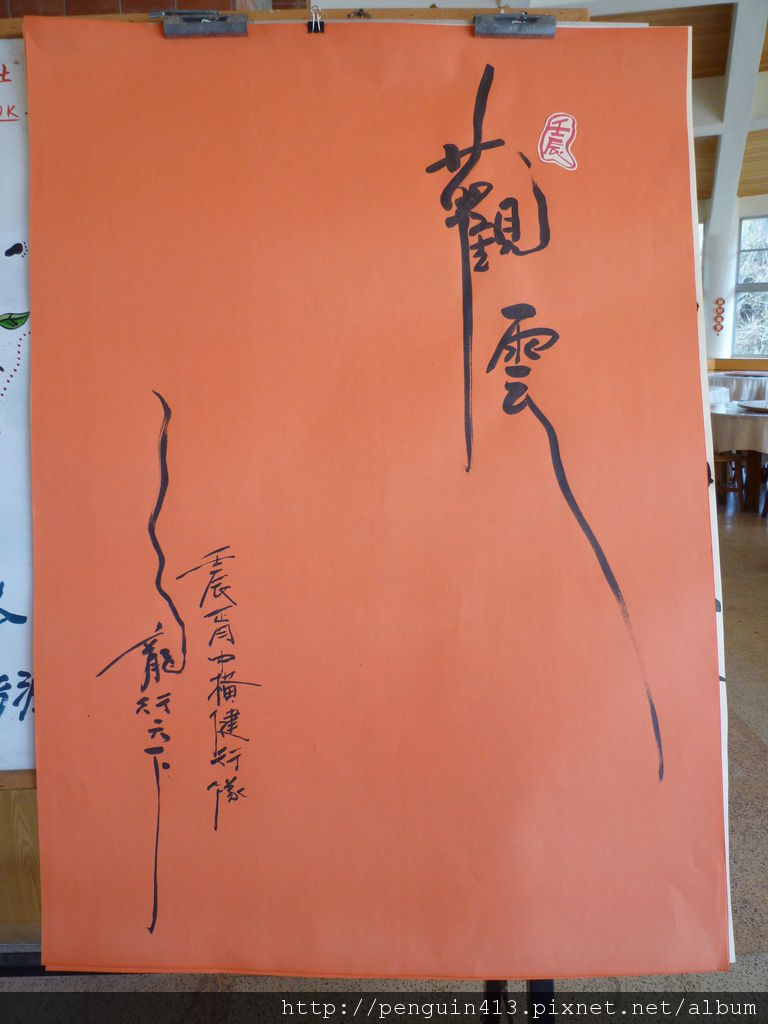 觀雲
壬辰
壬辰
中橫健行隊
龍行天下
http://penguin413.pixnet.net/album